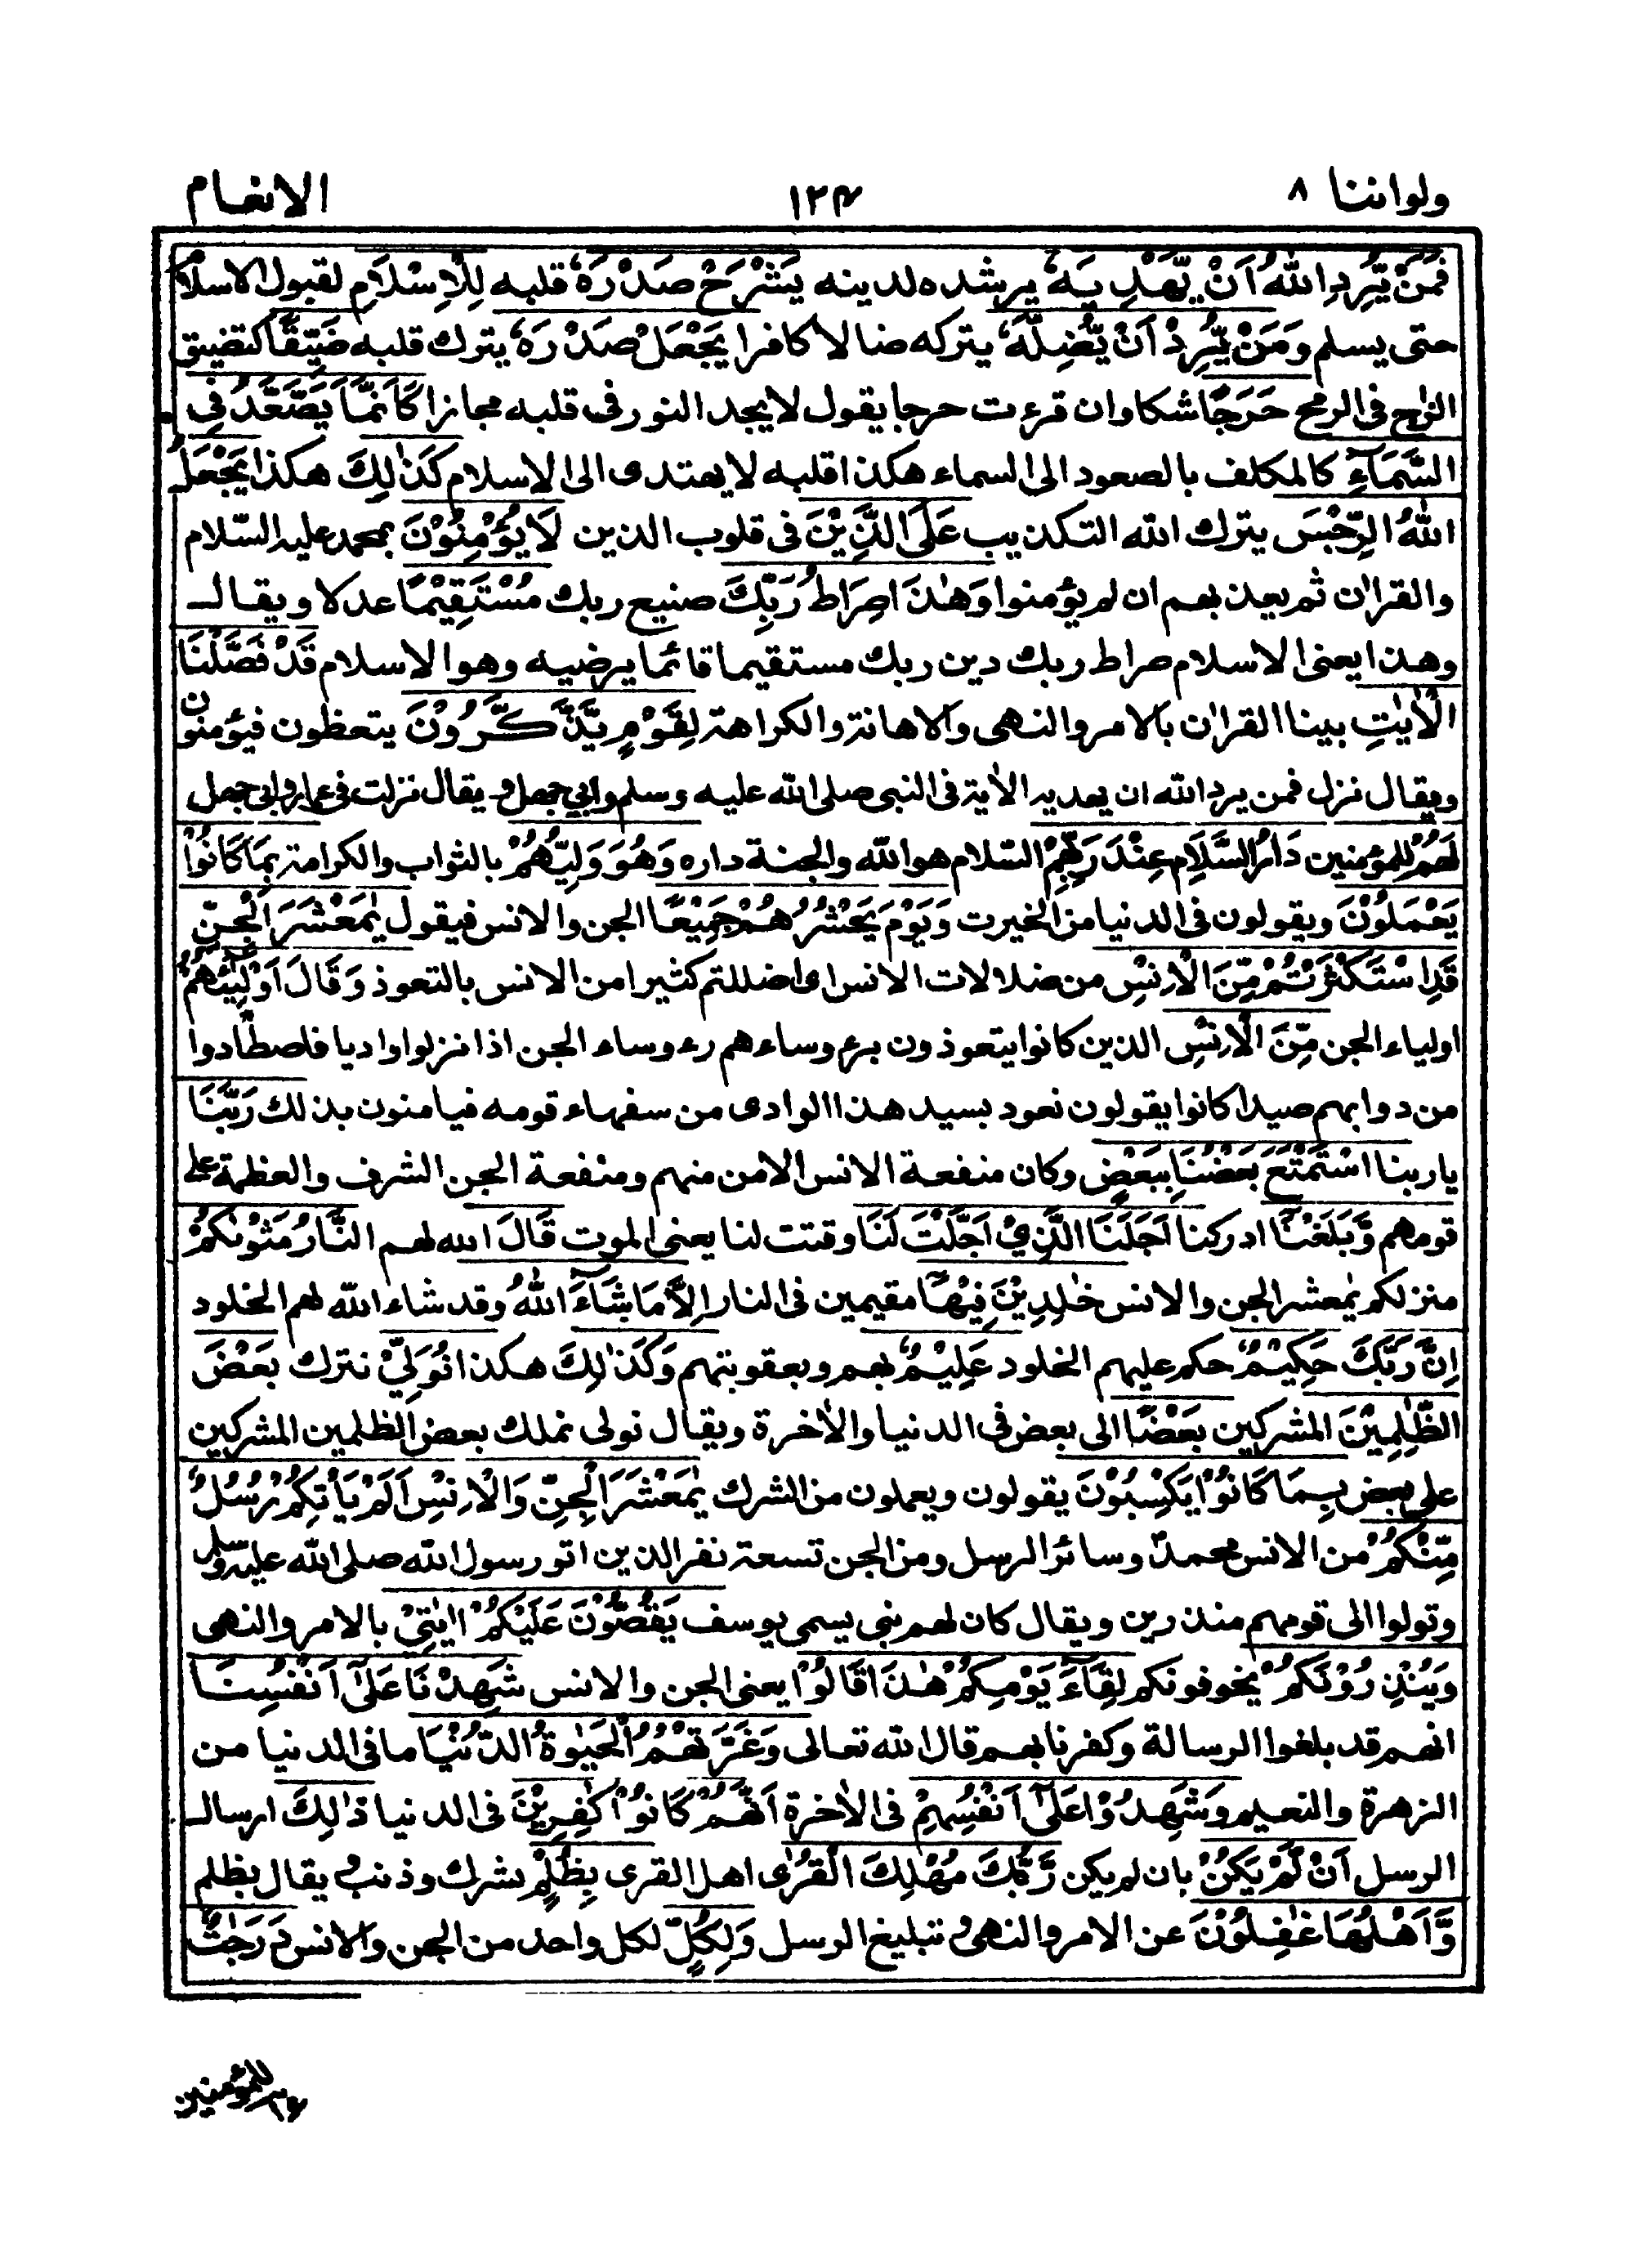 ولواننا ٨ ١٢۴ الانعام
فَمَنْ يُّرِدِ اللّٰهُ اَنْ يَّهْدِيَهٗ يرشده لدينه يَشْرَحْ صَدْرَهٗ قلبه لِلْاِسْلَامِ لقبول الاسلام
حتى يسلم وَمَنْ يُّرِدْ اَنْ يُّضِلَّهٗ يتركه ضالا كافرا يَجْعَلْ صَدْرَهٗ يترك قلبه ضَيِّقًا كتضييق
الزج فى الرمح حَرَجًا شكا وان قرءت حرجا يقول لا يجد النور فى قلبه مجازا كَاَنَّمَا يَصَّعَّدُ فِى
السَّمَآءِ كالمكلف بالصعود الى السماء هكذا قلبه لا يهتدى الى الاسلام كَذٰلِكَ هكذا يَجْعَلُ
اللّٰهُ الرِّجْسَ يترك الله التكذيب عَلَى الَّذِيْنَ فى قلوب الذين لَا يُؤْمِنُوْنَ بمحمد عليه السّلام
والقراٰن ثم يعذبهم ان لم يؤمنوا وَهٰذَا صِرَاطُ رَبِّكَ صنيع ربك مُسْتَقِيْمًا عدلا ويقال
وهذا يعنى الاسلام صراط ربك دين ربك مستقيما قائما يرضيه وهو الاسلام قَدْ فَصَّلْنَا
الْاٰيٰتِ بينا القراٰن بالامر والنهى والاهانة والكراهة لِقَوْمٍ يَّذَّكَّرُوْنَ يتعظون فيؤمنون
ويقال نزل فمن يرد الله ان يهديه الاٰية فى النبى صلى الله عليه وسلم وابى جهل و يقال نزلت فى عمار وابى جهل
لَهُمْ للمؤمنين دَارُ السَّلَامِ عِنْدَ رَبِّهِمْ السّلام هو الله والجنة داره وَهُوَ وَلِيُّهُمْ بالثواب والكرامة بِمَا كَانُوْا
يَعْمَلُوْنَ ويقولون فى الدنيا من الخيرت وَيَوْمَ يَحْشُرُهُمْ جَمِيْعًا الجن والانس فيقول يٰمَعْشَرَ الْجِنِّ
قَدِ اسْتَكْثَرْتُمْ مِّنَ الْاِنْسِ من ضلالات الانس اى اضللتم كثيرا من الانس بالتعوذ وَقَالَ اَوْلِيٰٓئُهُمْ
اولياء الجن مِّنَ الْاِنْسِ الذين كانوا يتعوذون برءوساءهم رءوساء الجن اذا نزلوا واديا فاصطادوا
من دوابهم صيدا كانوا يقولون نعوذ بسيد هذا الوادى من سفهاء قومه فيامنون بذلك رَبَّنَا
ياربنا اسْتَمْتَعَ بَعْضُنَا بِبَعْضٍ وكان منفعة الانس الامن منهم ومنفعة الجن الشرف والعظمة على
قومهم وَّبَلَغْنَآ ادركنا اَجَلَنَا الَّذِىْ اَجَّلْتَ لَنَا وقتت لنا يعنى الموت قَالَ الله لهم النَّارُ مَثْوٰىكُمْ
منزلكم يٰمعشر الجن والانس خٰلِدِيْنَ فِيْهَآ مقيمين فى النار اِلَّا مَا شَآءَ اللّٰهُ وقد شاء الله لهم الخلود
اِنَّ رَبَّكَ حَكِيْمٌ حكم عليهم الخلود عَلِيْمٌ بهم وبعقوبتهم وَكَذٰلِكَ هكذا نُوَلِّىْ نترك بَعْضَ
الظّٰلِمِيْنَ المشركين بَعْضًا الى بعض فى الدنيا والاٰخرة ويقال نولى نملك بعض الظلمين المشركين
على بعض بِمَا كَانُوْا يَكْسِبُوْنَ يقولون ويعملون من الشرك يٰمَعْشَرَ الْجِنِّ وَالْاِنْسِ اَلَمْ يَاْتِكُمْ رُسُلٌ
مِّنْكُمْ من الانس محمدؐ وسائر الرسل ومن الجن تسعة نفر الذين اتو رسول الله صلى الله عليه وسلم
وتولوا الى قومهم منذرين ويقال كان لهم نبى يسمى يوسف يَقُصُّوْنَ عَلَيْكُمْ اٰيٰتِىْ بالامر والنهى
وَيُنْذِرُوْنَكُمْ يخوفونكم لِقَآءَ يَوْمِكُمْ هٰذَا قَالُوْا يعنى الجن والانس شَهِدْنَا عَلٰٓى اَنْفُسِنَا
انهم قد بلغوا الرسالة وكفرنا بهم قال الله تعالى وَغَرَّتْهُمُ الْحَيٰوةُ الدُّنْيَا ما فى الدنيا من
الزهرة والنعيم وَشَهِدُوْا عَلٰٓى اَنْفُسِهِمْ فى الاٰخرة اَنَّهُمْ كَانُوْا كٰفِرِيْنَ فى الدنيا ذٰلِكَ ارسال
الرسل اَنْ لَّمْ يَكُنْ بان لم يكن رَّبُّكَ مُهْلِكَ الْقُرٰى اهل القرى بِظُلْمٍ بشرك وذنب و يقال بظلم
وَّاَهْلُهَا غٰفِلُوْنَ عن الامر والنهى و تبليغ الرسل وَلِكُلٍّ لكل واحد من الجن والانس دَرَجٰتٌ
للمؤمنين